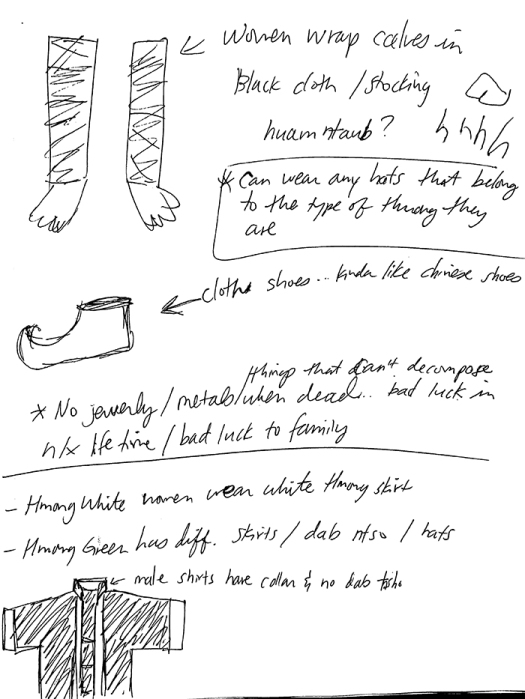 Women wrap calves in
Black cloth / stocking
huam ntaub?
* Can wear any hats that belong
to the type of Hmong they
are
cloth shoes... kinda like chinese shoes
things that can't decompose
* No jewerly / metals / when dead... bad luck in
n/x life time / bad luck to family
- Hmong White women wear white Hmong skirt
- Hmong Green has diff. skirts / dab ntso / hats
male shirts have collar & no dab